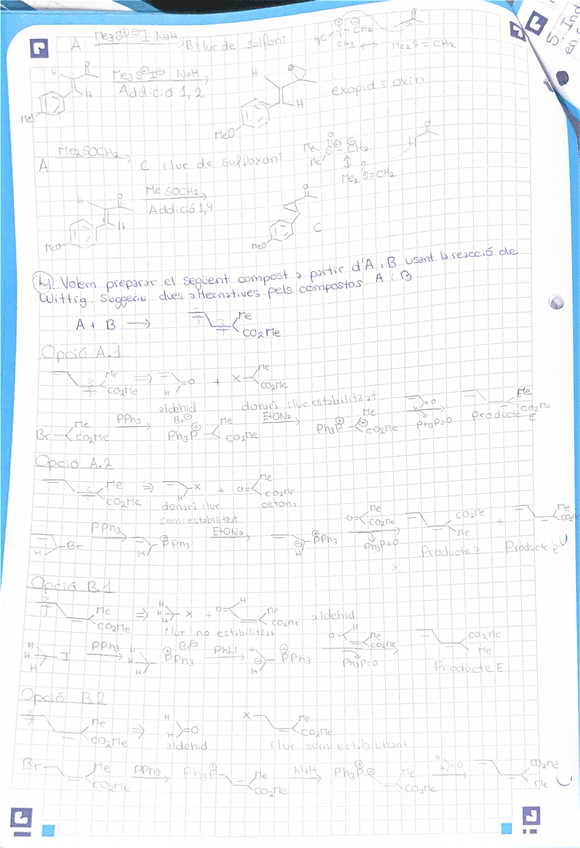 A Me₃S⊕I⊖ NaH B ilur de sulfoni CH₂ CH₃ ↔ Me₂S=CH₂
Me₃S⊕I⊖ NaH
Addició 1,2
exopid = oxir
MeO MeO
A Me₂SOCH₂ C ilur de sulfoxoni
Me₂S=CH₂
Me SOCH₂
Addició 1,4
MeO MeO C
4) Volem preparar el següent compost a partir d'A i B usant la reacció de
Wittig. Suggeriu dues alternatives pels compostos A i B
A + B → Me CO₂Me
Opció A.1
Me CO₂Me ⇒ H O + X Me CO₂Me
aldehid donarà ilur estabilitzat
Br Me CO₂Me PPh₃ Br⊖ Ph₃P⊕ Me CO₂Me EtONa Ph₃P⊕ Me CO₂Me Ph₃P=O Producte E
Opció A.2
Me CO₂Me ⇒ X H + O= Me CO₂Me
donarà ilur cetona
semiestabilitzat
Br H PPh₃ PPh₃ EtONa PPh₃ O= Me CO₂Me Ph₃P=O CO₂Me Me + Me CO₂Me
Producte Z Producte E
Opció B.1
Me CO₂Me ⇒ H H H X + O H Me CO₂Me aldehid
ilur no estabilitzat
H H H I PPh₃ PPh₃ Br⊖ PhLi PPh₃ Ph₃P=O CO₂Me Me
Producte E
Opció B.2
Me CO₂Me ⇒ H H O X Me CO₂Me
aldehid ilur semiestabilitzat
Br Me CO₂Me PPh₃ Ph₃P Me CO₂Me NaH Ph₃P Me CO₂Me H H =O CO₂Me Me